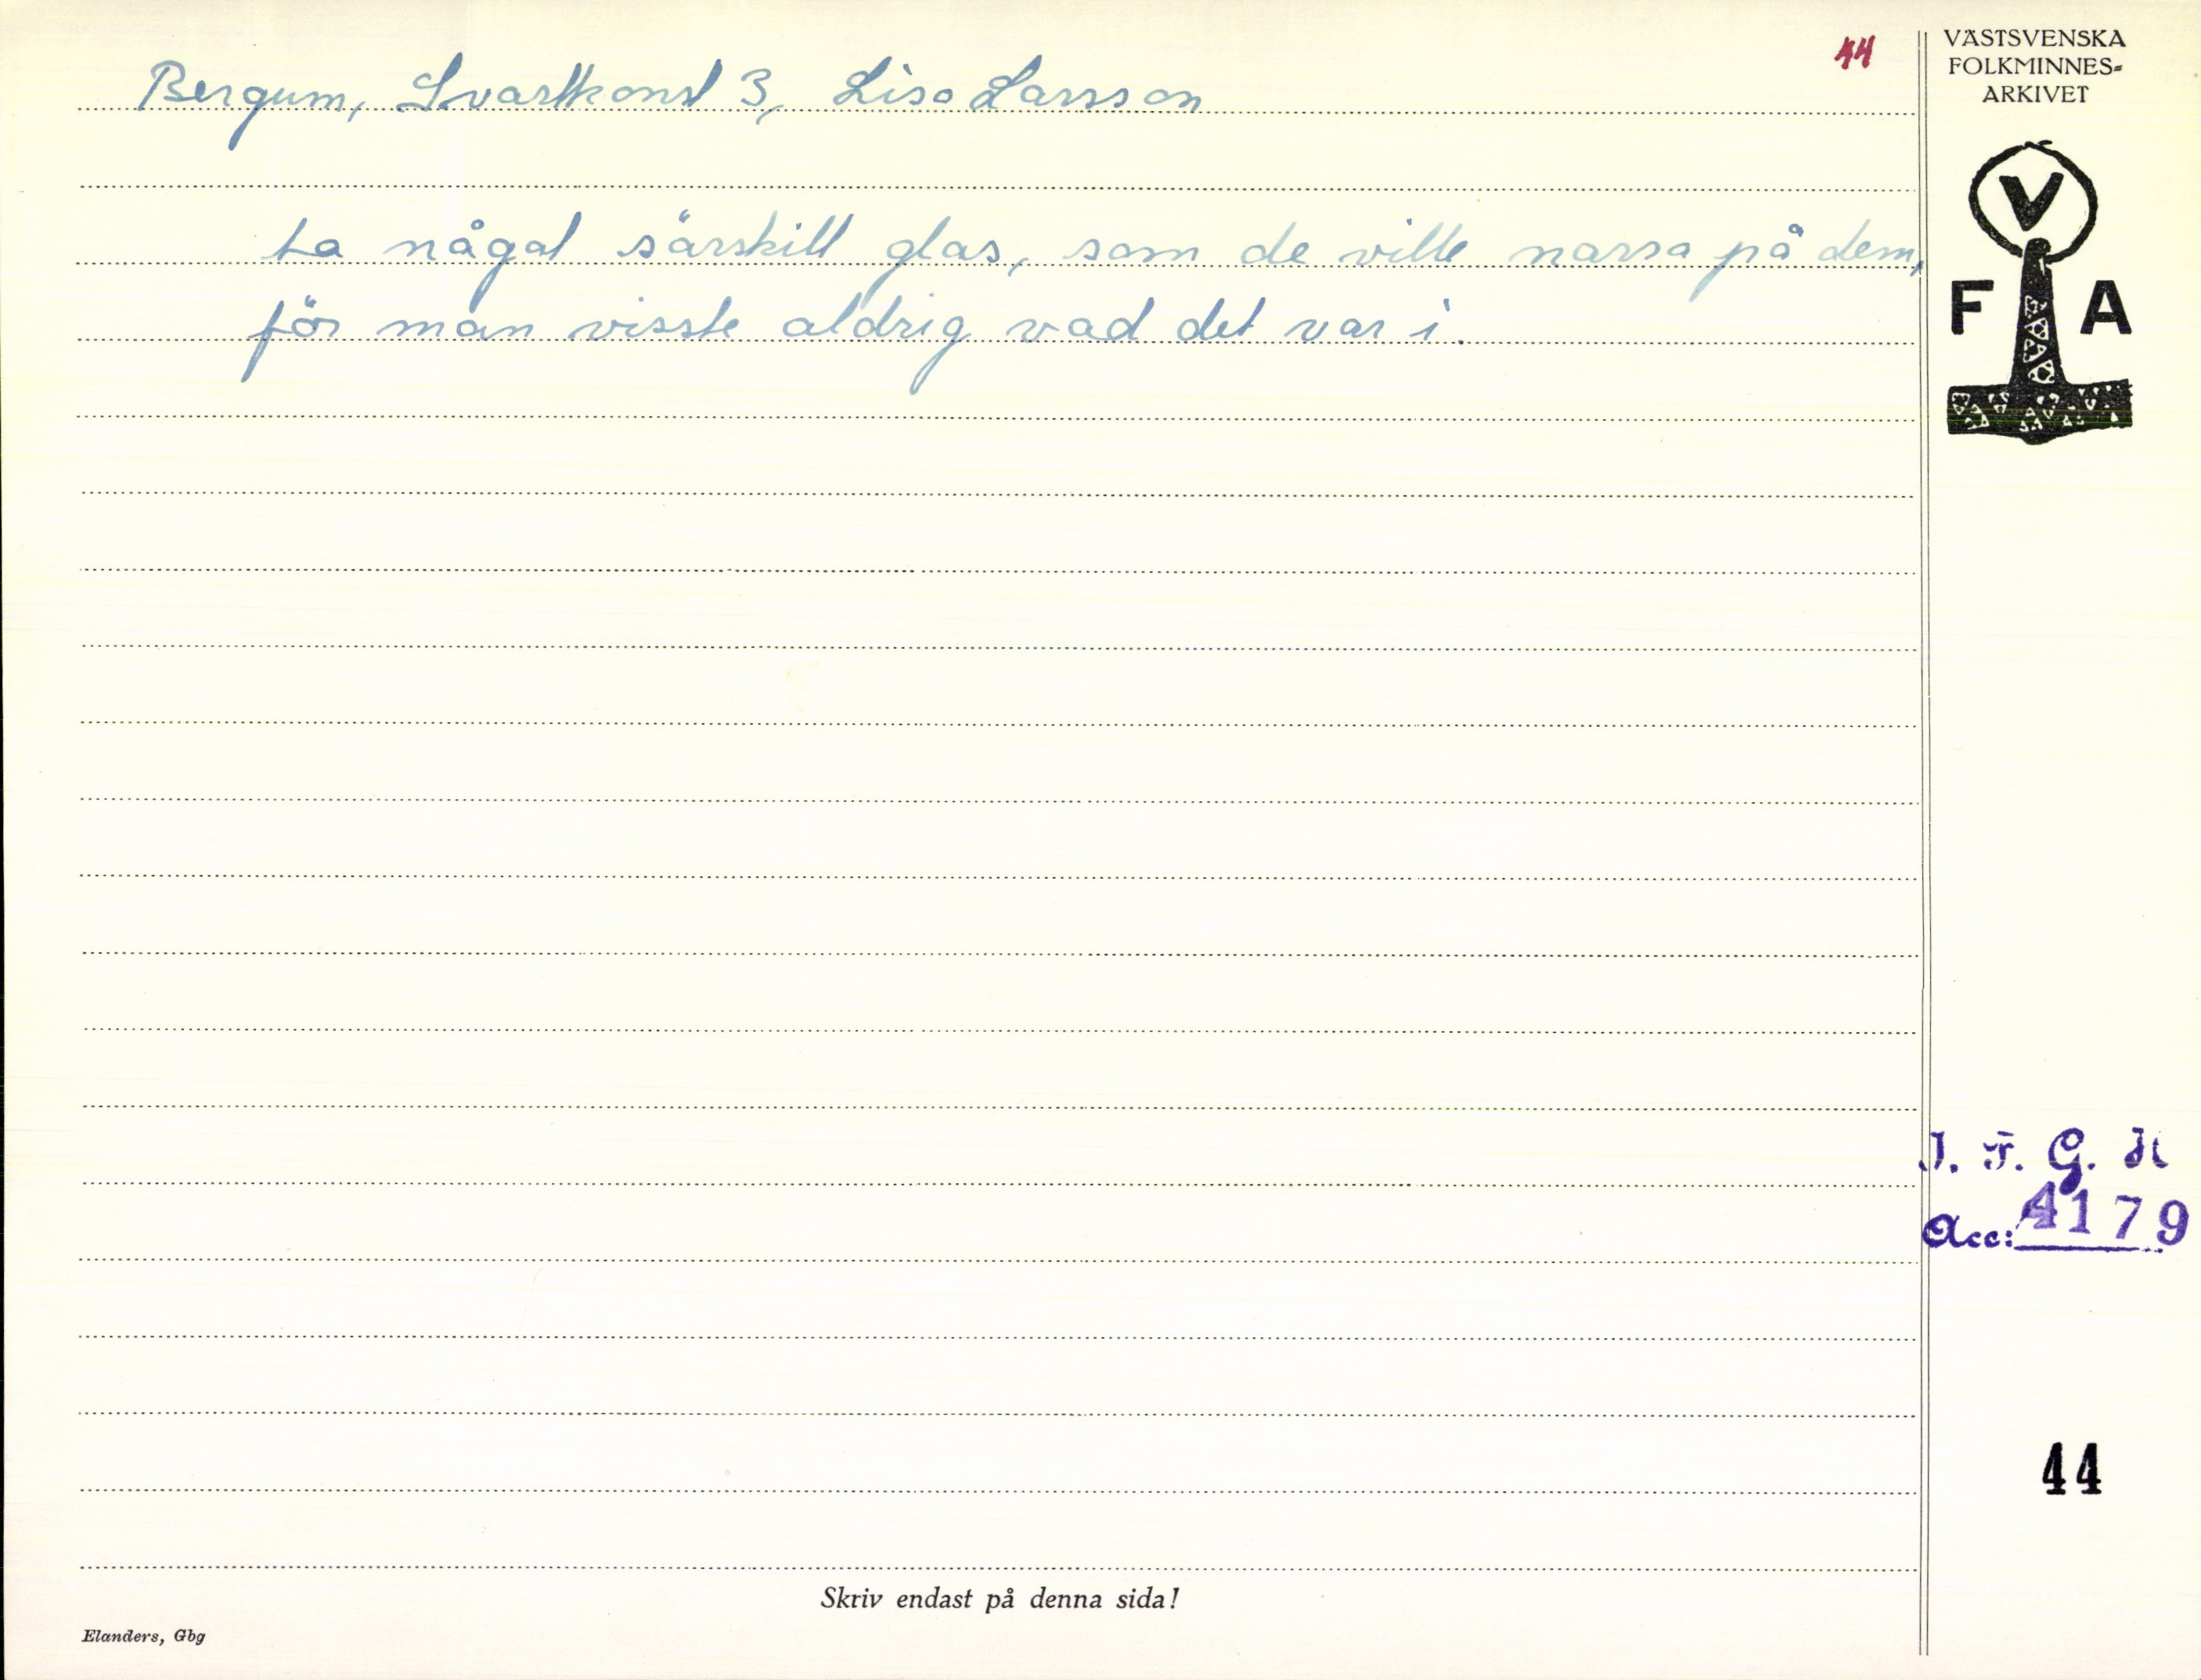 44
Bergum, Svartkonst 3, Lisa Larsson
ta något särskilt glas, som de ville narra på dem,
för man visste aldrig vad det var i.
VÄSTSVENSKA
FOLKMINNES-
ARKIVET
V
F A
I. F. G. H
Acc: 4179
44
Skriv endast på denna sida!
Elanders, Gbg